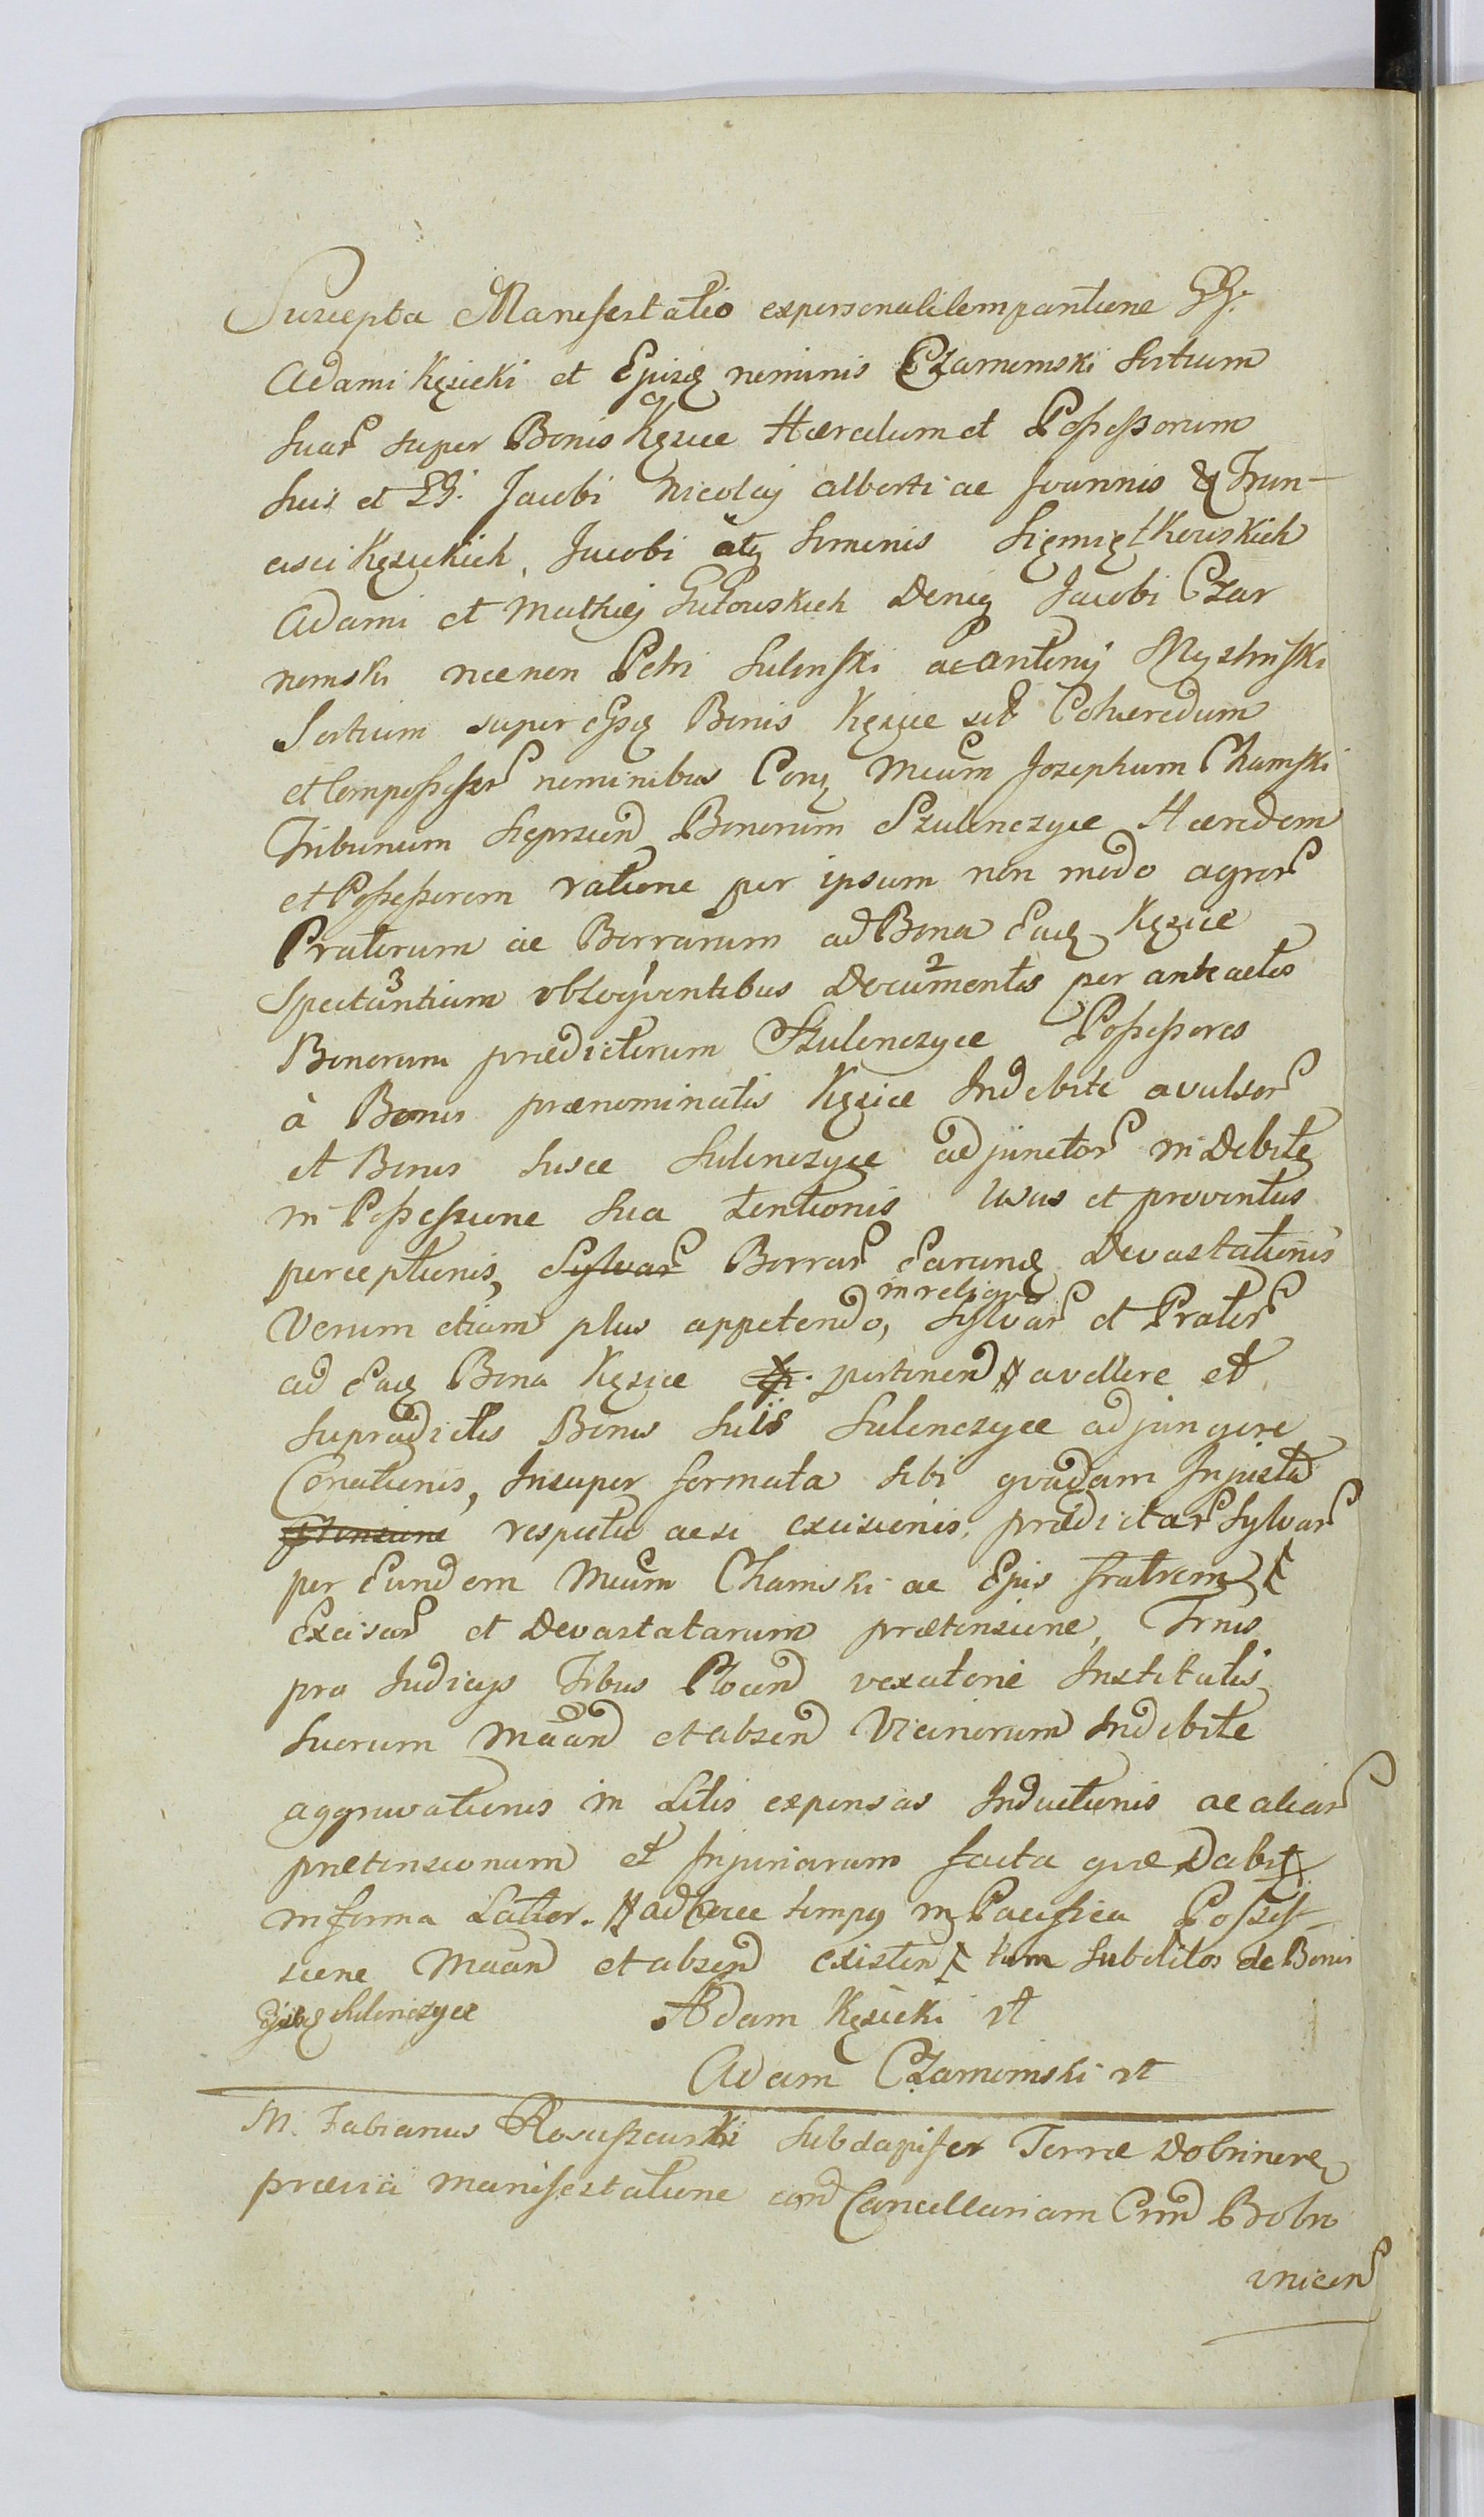 Suscepta Manifestatio ex personali comparitione GG.
Adami Kęsicki et Ejusq nominis Czarnomski Sortium
suar super Bonis Kęsice Hæredum et Possessorum
suis et GG. Jacobi Nicolaj Alberti ac Joannis & Fran-
cisci Kęsickich, Jacobi atq Simonis Siemiętkowskich
Adami et Mathiej Gutowskich Deniq Jacobi Czar
nomski necnon Petri Sulinski ac Antonij Myśliński
Sortium super Ejsq Bonis Kęsice sit Cohæredum
et Compossessor nominibus Conq Mcum Josephum Chamski
Tribunum Sieprscen Bonorum Szulenczyce Hæredem
et Possessorem ratione per ipsum non modo agror
Pratorum ac Borrarum ad Bona Eaq Kęsice
Spectantium 3 obloqventibus 1 Documentis 2 per anteactos
Bonorum prædictorum Szulenczyce Possessores
à Bonis prænominatis Kęsice Indebite avulsor
et Bonis suis Sulenczyce adjunctor in Debite
in Possessione sua tentionis usus et proventus
perceptionis, Sylvar Borrar Earunq Devastationis
in reliqvo
Verum etiam plus appetendo, Sylvar et Prator
ad Eaq Bona Kęsice pertinen avellere et
supradictis Bonis suis Sulenczyce adjungere
Conationis, Insuper formata sibi qvadam Injusta
respectu acsi excisionis prædictar Sylvar
per Eundem Mcum Chamski ac Ejus fratrem
Excisar et Devastatarum prætensione, Trnis
pro Judicijs Trbus Plocen vexatorie Institutis
suorum Maan et absen Vicinorum Indebite
aggravationis in Litis expensas Inductionis ac aliar
prætensionum et Injuriarum facta qvæ Dabit
in forma Latior. ad hocce tempus in Pacifica Posses-
sione Maan et absen existen tum subditos de Bonis
Ejusq Sulenczyce Adam Kęsicki
Adam Czarnomski
M. Fabianus Rosciszewski Subdapifer Terræ Dobrinen
præviâ manifestatione cord Cancellariam Crnd Bobro
vnicen